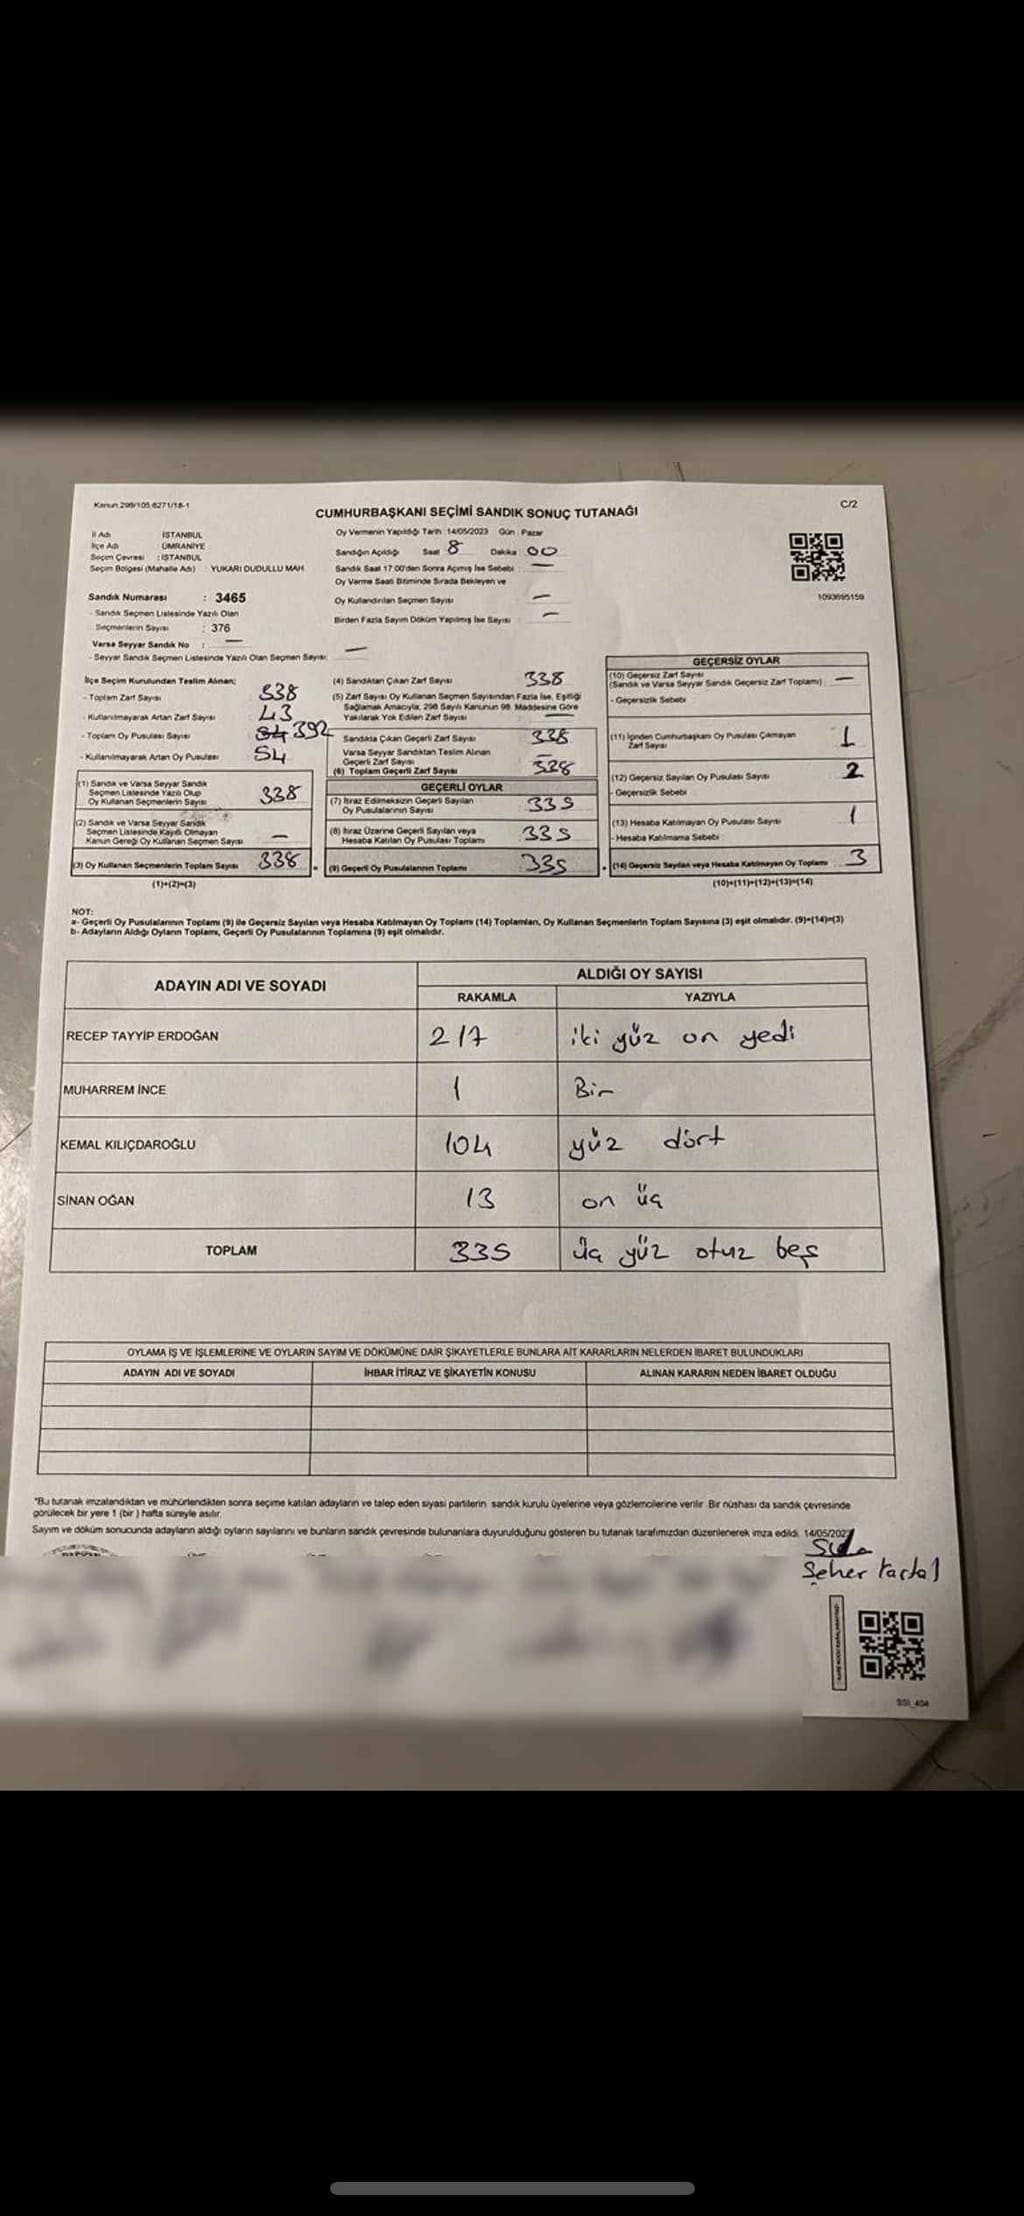 Kanun 298/105.6271/18-1
C/2
CUMHURBAŞKANI SEÇİMİ SANDIK SONUÇ TUTANAĞI
İl Adı İSTANBUL
İlçe Adı ÜMRANİYE
Seçim Çevresi : İSTANBUL
Seçim Bölgesi (Mahalle Adı) YUKARI DUDULLU MAH.
Sandık Numarası : 3465
- Sandık Seçmen Listesinde Yazılı Olan
Seçmenlerin Sayısı : 376
Varsa Seyyar Sandık No : —
- Seyyar Sandık Seçmen Listesinde Yazılı Olan Seçmen Sayısı: —
Oy Vermenin Yapıldığı Tarih :14/05/2023 Gün : Pazar
Sandığın Açıldığı Saat 8 Dakika 00
Sandık Saat 17.00'den Sonra Açılmış İse Sebebi : —
Oy Verme Saati Bitiminde Sırada Bekleyen ve
Oy Kullandırılan Seçmen Sayısı —
Birden Fazla Sayım Döküm Yapılmış İse Sayısı : —
1093695159
İlçe Seçim Kurulundan Teslim Alınan;
- Toplam Zarf Sayısı 338
- Kullanılmayarak Artan Zarf Sayısı 43
- Toplam Oy Pusulası Sayısı 392
- Kullanılmayarak Artan Oy Pusulası 54
(1) Sandık ve Varsa Seyyar Sandık
Seçmen Listesinde Yazılı Olup
Oy Kullanan Seçmenlerin Sayısı 338
(2) Sandık ve Varsa Seyyar Sandık
Seçmen Listesinde Kayıtlı Olmayan
Kanun Gereği Oy Kullanan Seçmen Sayısı —
(3) Oy Kullanan Seçmenlerin Toplam Sayısı 338
(1)+(2)=(3)
(4) Sandıktan Çıkan Zarf Sayısı 338
(5) Zarf Sayısı Oy Kullanan Seçmen Sayısından Fazla İse, Eşitliği
Sağlamak Amacıyla; 298 Sayılı Kanunun 98. Maddesine Göre
Yakılarak Yok Edilen Zarf Sayısı —
Sandıkta Çıkan Geçerli Zarf Sayısı 338
Varsa Seyyar Sandıktan Teslim Alınan
Geçerli Zarf Sayısı —
(6) Toplam Geçerli Zarf Sayısı 338
GEÇERLİ OYLAR
(7) İtiraz Edilmeksizin Geçerli Sayılan
Oy Pusulalarının Sayısı 335
(8) İtiraz Üzerine Geçerli Sayılan veya
Hesaba Katılan Oy Pusulası Toplamı 335
(9) Geçerli Oy Pusulalarının Toplamı 335
GEÇERSİZ OYLAR
(10) Geçersiz Zarf Sayısı
(Sandık ve Varsa Seyyar Sandık Geçersiz Zarf Toplamı) —
- Geçersizlik Sebebi
(11) İçinden Cumhurbaşkanı Oy Pusulası Çıkmayan
Zarf Sayısı 1
(12) Geçersiz Sayılan Oy Pusulası Sayısı 2
- Geçersizlik Sebebi
(13) Hesaba Katılmayan Oy Pusulası Sayısı 1
- Hesaba Katılmama Sebebi
(14) Geçersiz Sayılan veya Hesaba Katılmayan Oy Toplamı 3
(10)+(11)+(12)+(13)=(14)
NOT:
a- Geçerli Oy Pusulalarının Toplamı (9) ile Geçersiz Sayılan veya Hesaba Katılmayan Oy Toplamı (14) Toplamları, Oy Kullanan Seçmenlerin Toplam Sayısına (3) eşit olmalıdır. (9)+(14)=(3)
b- Adayların Aldığı Oyların Toplamı, Geçerli Oy Pusulalarının Toplamına (9) eşit olmalıdır.
ADAYIN ADI VE SOYADI
ALDIĞI OY SAYISI
RAKAMLA YAZIYLA
RECEP TAYYİP ERDOĞAN 217 iki yüz on yedi
MUHARREM İNCE 1 Bir
KEMAL KILIÇDAROĞLU 104 yüz dört
SİNAN OĞAN 13 on üç
TOPLAM 335 üç yüz otuz beş
OYLAMA İŞ VE İŞLEMLERİNE VE OYLARIN SAYIM VE DÖKÜMÜNE DAİR ŞİKAYETLERLE BUNLARA AİT KARARLARIN NELERDEN İBARET BULUNDUKLARI
ADAYIN ADI VE SOYADI İHBAR İTİRAZ VE ŞİKAYETİN KONUSU ALINAN KARARIN NEDEN İBARET OLDUĞU
"Bu tutanak imzalandıktan ve mühürlendikten sonra seçime katılan adayların ve talep eden siyasi partilerin sandık kurulu üyelerine veya gözlemcilerine verilir. Bir nüshası da sandık çevresinde
görülecek bir yere 1 (bir ) hafta süreyle asılır.
Sayım ve döküm sonucunda adayların aldığı oyların sayılarını ve bunların sandık çevresinde bulunanlara duyurulduğunu gösteren bu tutanak tarafımızdan düzenlenerek imza edildi. 14/05/2023
Seher Kartal
SSI_404